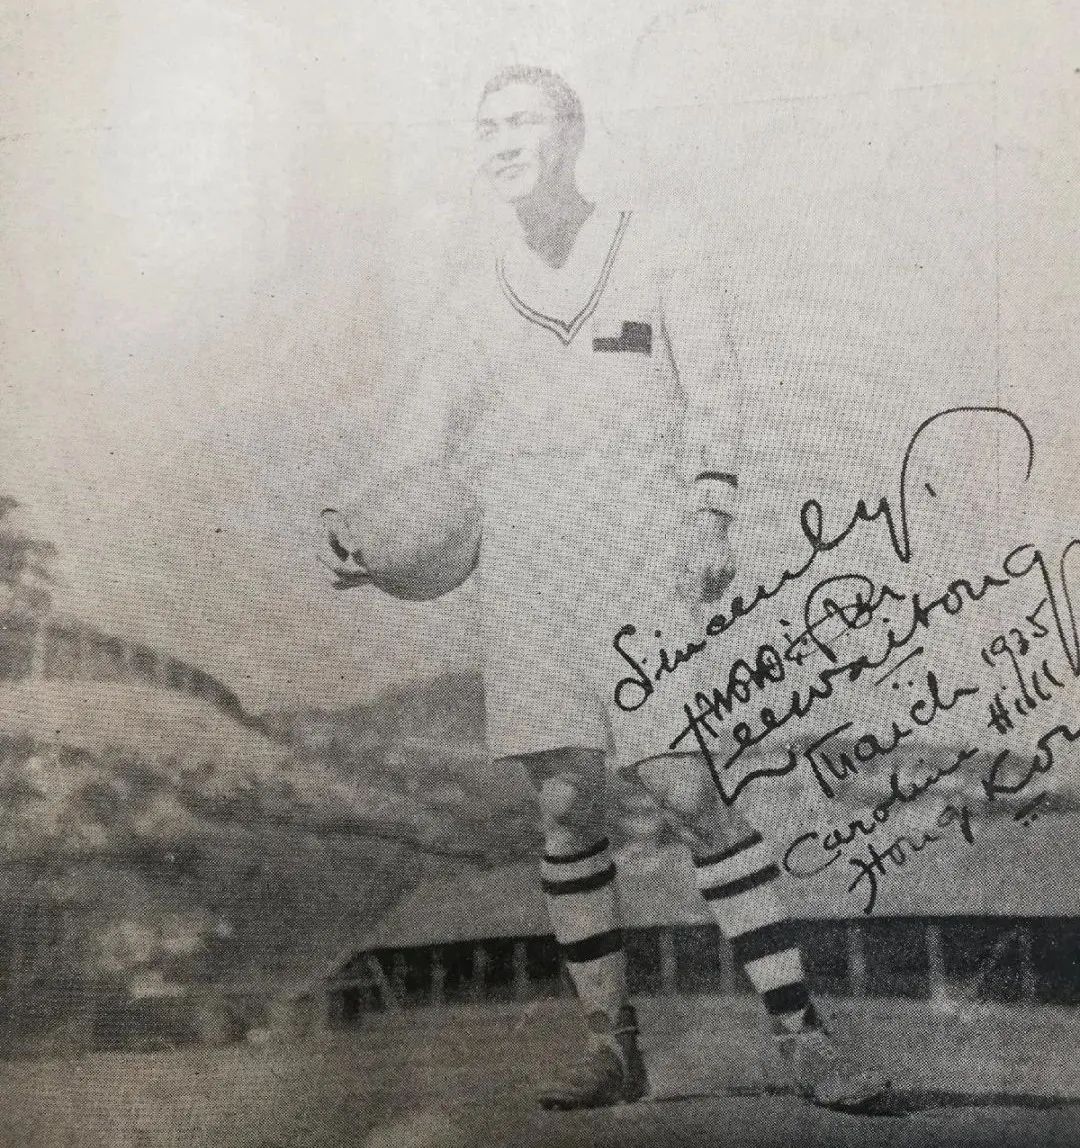 Sincerely.
Leewaitong
March 1935
Caroline Hill
Hong Kon